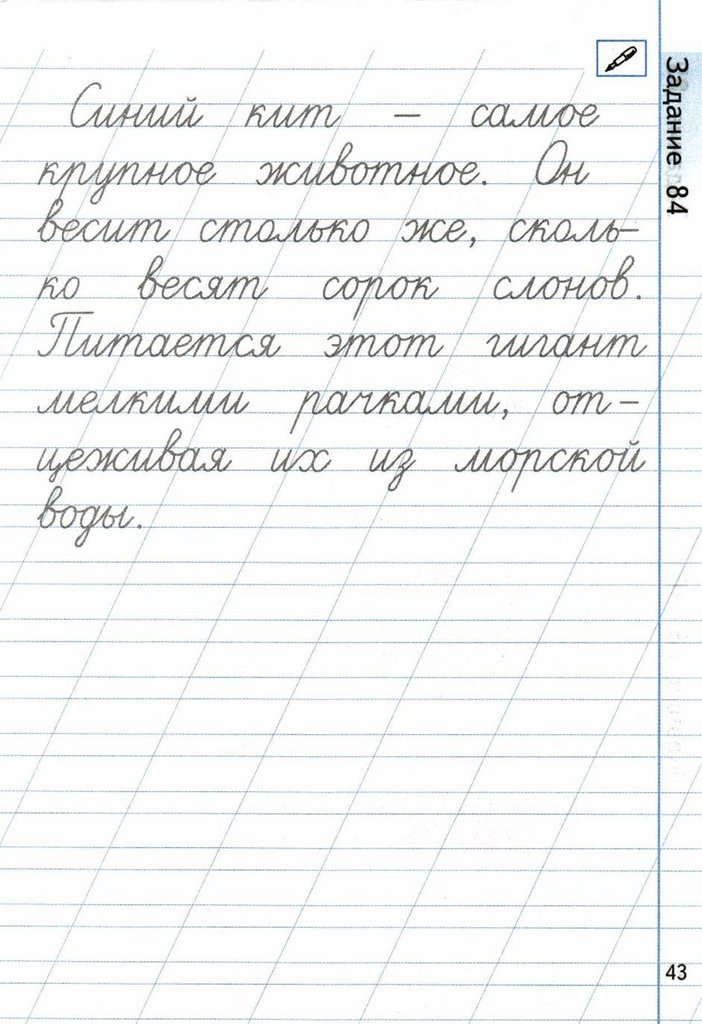 Задание 84
Синий кит – самое
крупное животное. Он
весит столько же, сколь-
ко весят сорок слонов.
Питается этот гигант
мелкими рачками, от-
цеживая их из морской
воды.
43